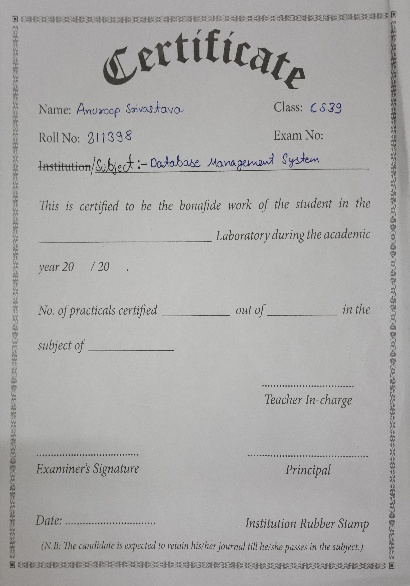 Certificate
Name: Anuroop Srivastava Class: CS39
Roll No: 211398 Exam No:
Institution/Subject :- Database Management System
This is certified to be the bonafide work of the student in the
____________ Laboratory during the academic
year 20 / 20 .
No. of practicals certified ________ out of ________ in the
subject of ________
Teacher In-charge
Examiner's Signature Principal
Date: .......................... Institution Rubber Stamp
(N.B: The candidate is expected to retain his/her journal till he/she passes in the subject.)